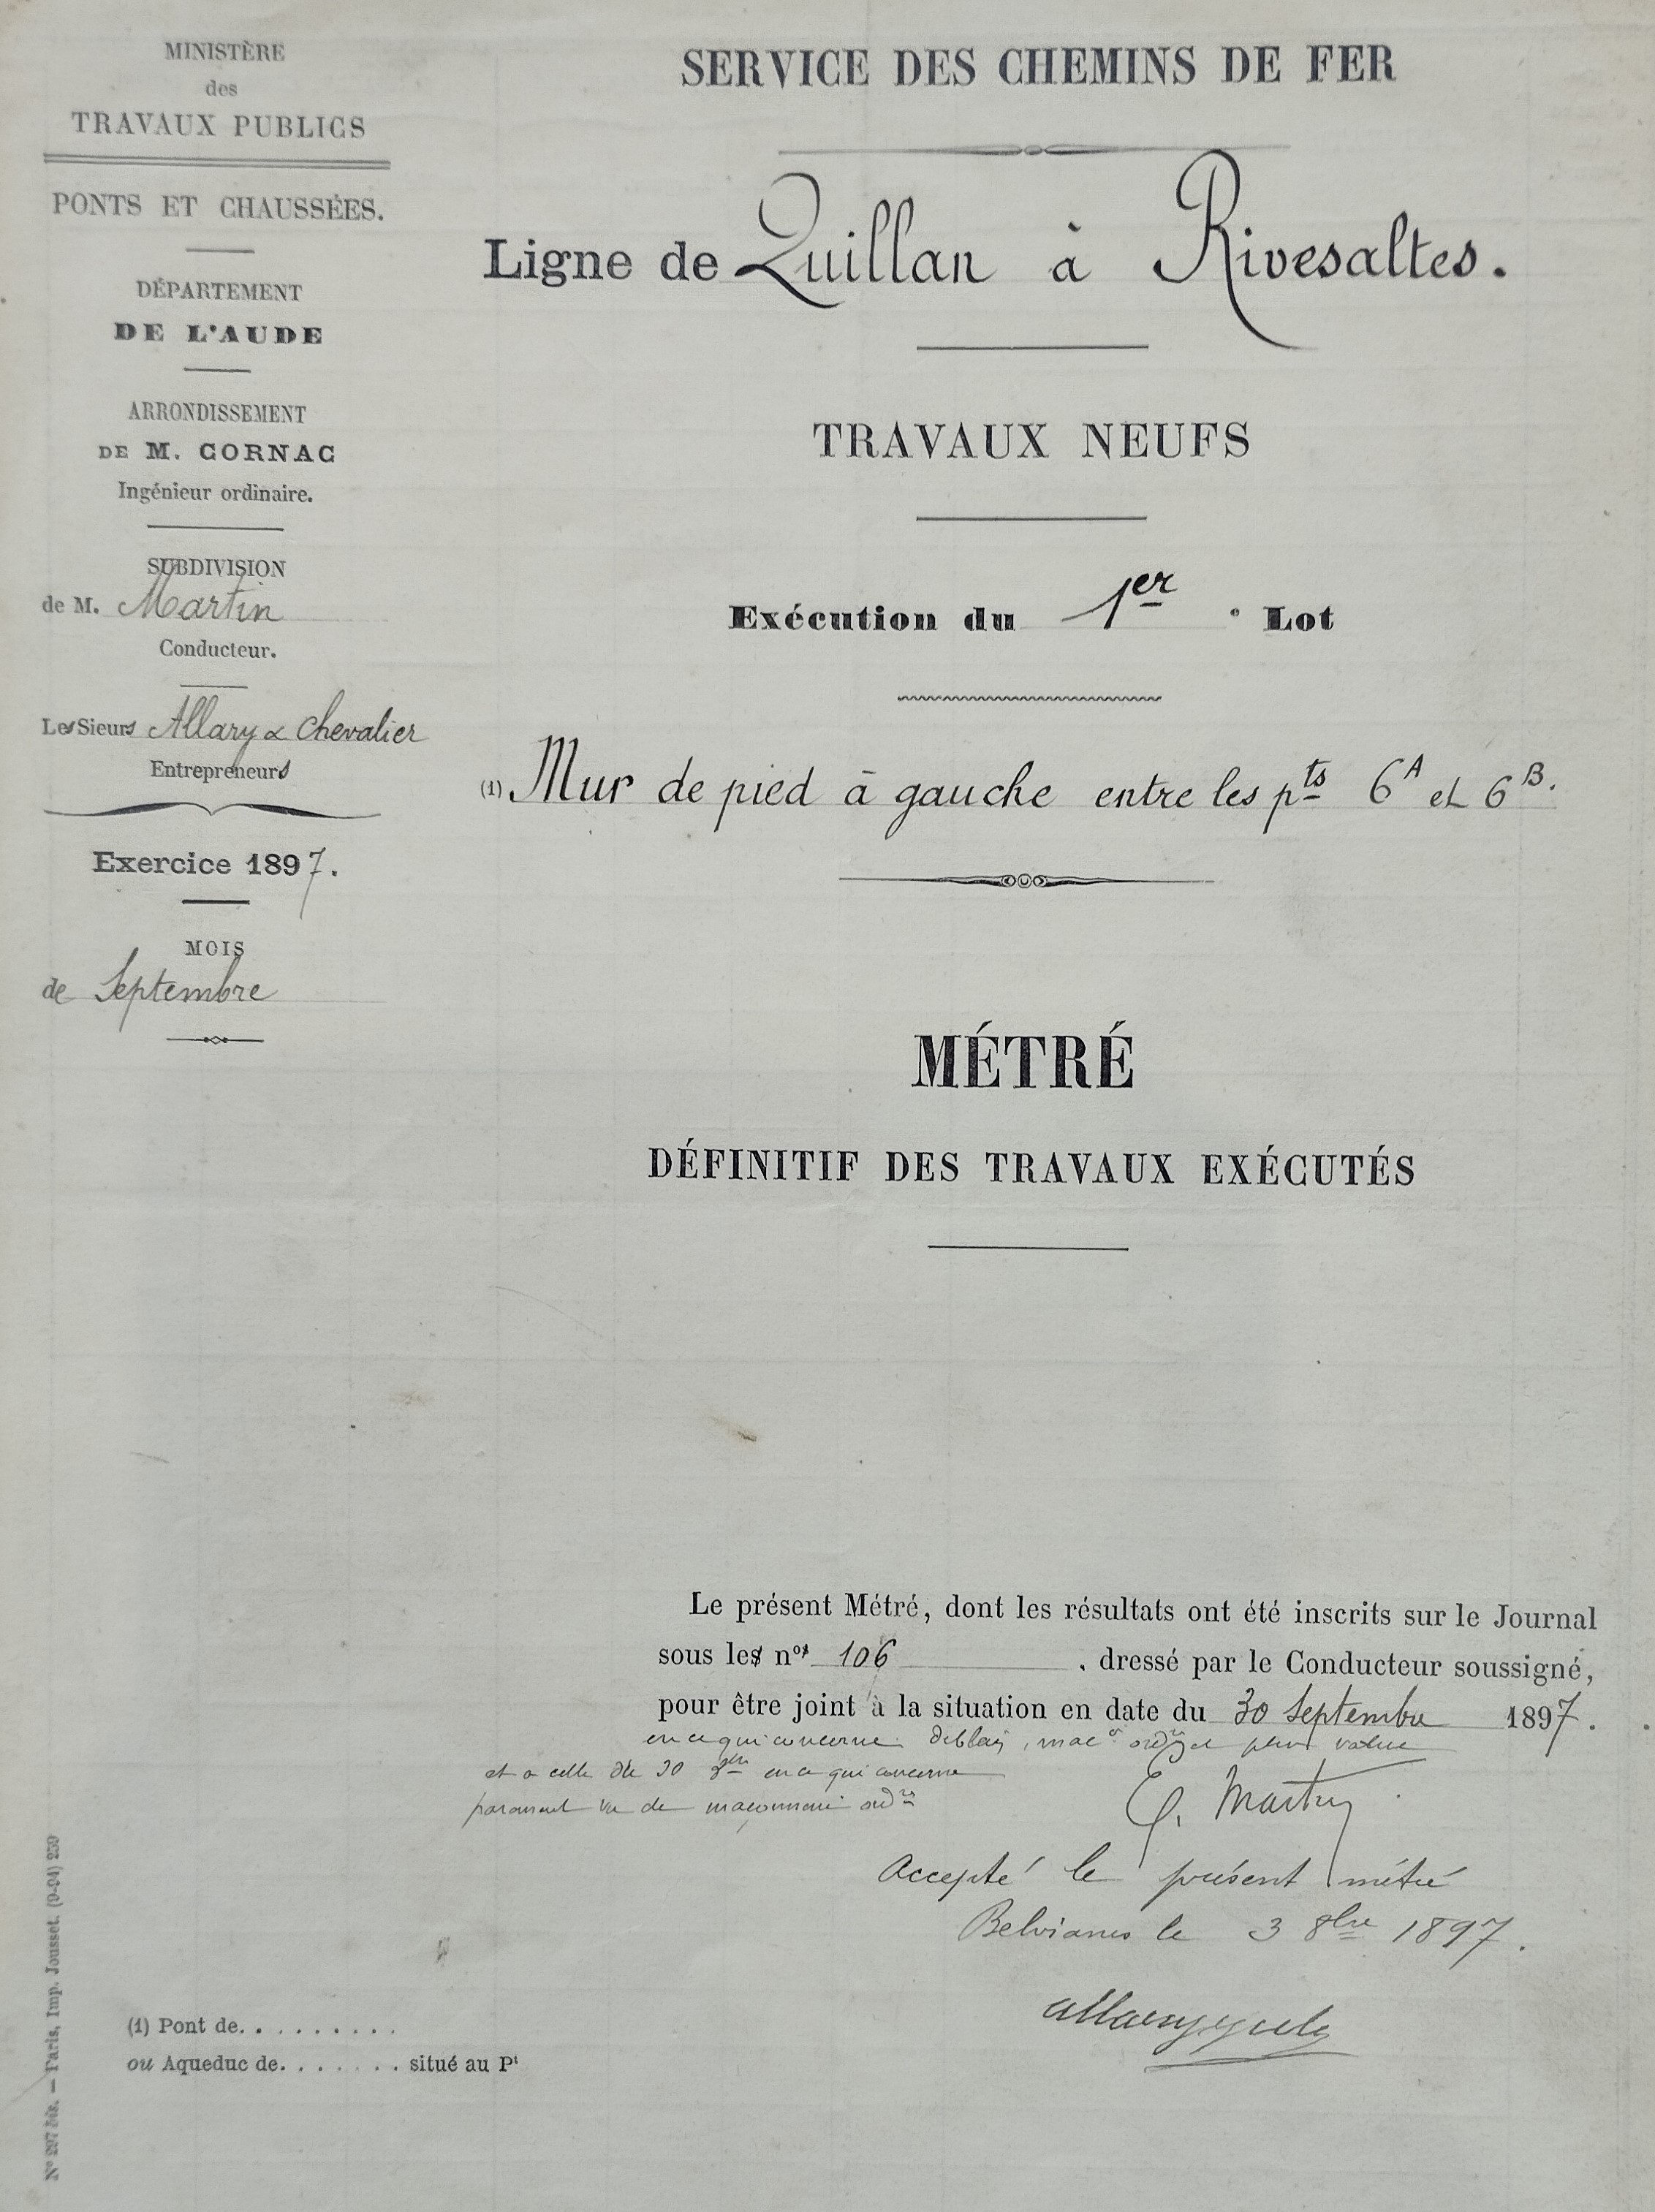 MINISTÈRE
des
TRAVAUX PUBLICS
PONTS ET CHAUSSÉES.
DÉPARTEMENT
DE L'AUDE
ARRONDISSEMENT
DE M. CORNAC
Ingénieur ordinaire.
SUBDIVISION
de M. Martin
Conducteur.
Les Sieurs Allary & Chevalier
Entrepreneurs
Exercice 1897.
MOIS
de Septembre
SERVICE DES CHEMINS DE FER
Ligne de Quillan à Rivesaltes.
TRAVAUX NEUFS
Exécution du 1er e Lot
(1) Mur de pied à gauche entre les pts 6A et 6B.
MÉTRÉ
DÉFINITIF DES TRAVAUX EXÉCUTÉS
Le présent Métré, dont les résultats ont été inscrits sur le Journal
sous les nos 106 , dressé par le Conducteur soussigné,
pour être joint à la situation en date du 30 Septembre 1897.
en ce qui concerne déblais, mac ordre et plus value
et à celle du 30 en ce qui concerne
parement vu de maçonnerie ordre
E. Martin
Accepté le présent métré
Belvianes le 3 8bre 1897.
(1) Pont de. . . . . . . . . .
ou Aqueduc de. . . . . . . . situé au Pt
No 297 bis. — Paris, Imp. Jousset. (9-94) 259